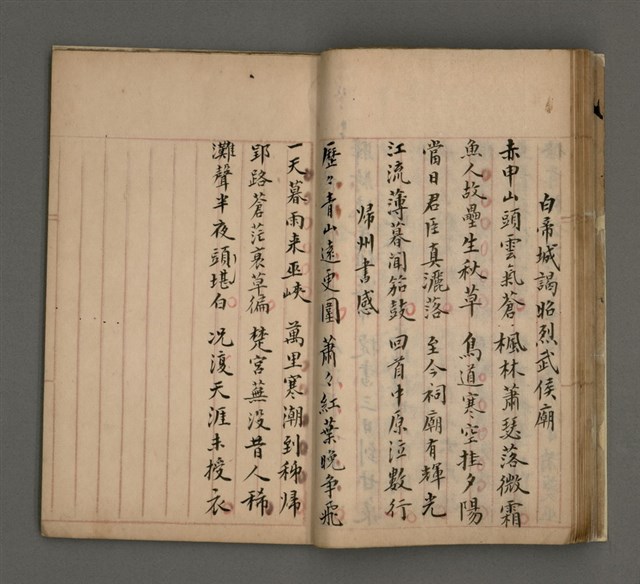 白帝城謁昭烈武侯廟
赤甲山頭雲氣蒼 楓林蕭瑟落微霜
魚人故壘生秋草 鳥道寒空挂夕陽
當日君臣真灑落 至今祠廟有輝光
江流薄暮聞笳鼓 回首中原泣數行
歸州書感
歷々青山遠更圍 蕭々紅葉晚爭飛
一天暮雨来巫峽 萬里寒潮到秭歸
郢路蒼茫衰草徧 楚宮蕪没昔人稀
灘聲半夜頭堪白 况復天涯未授衣